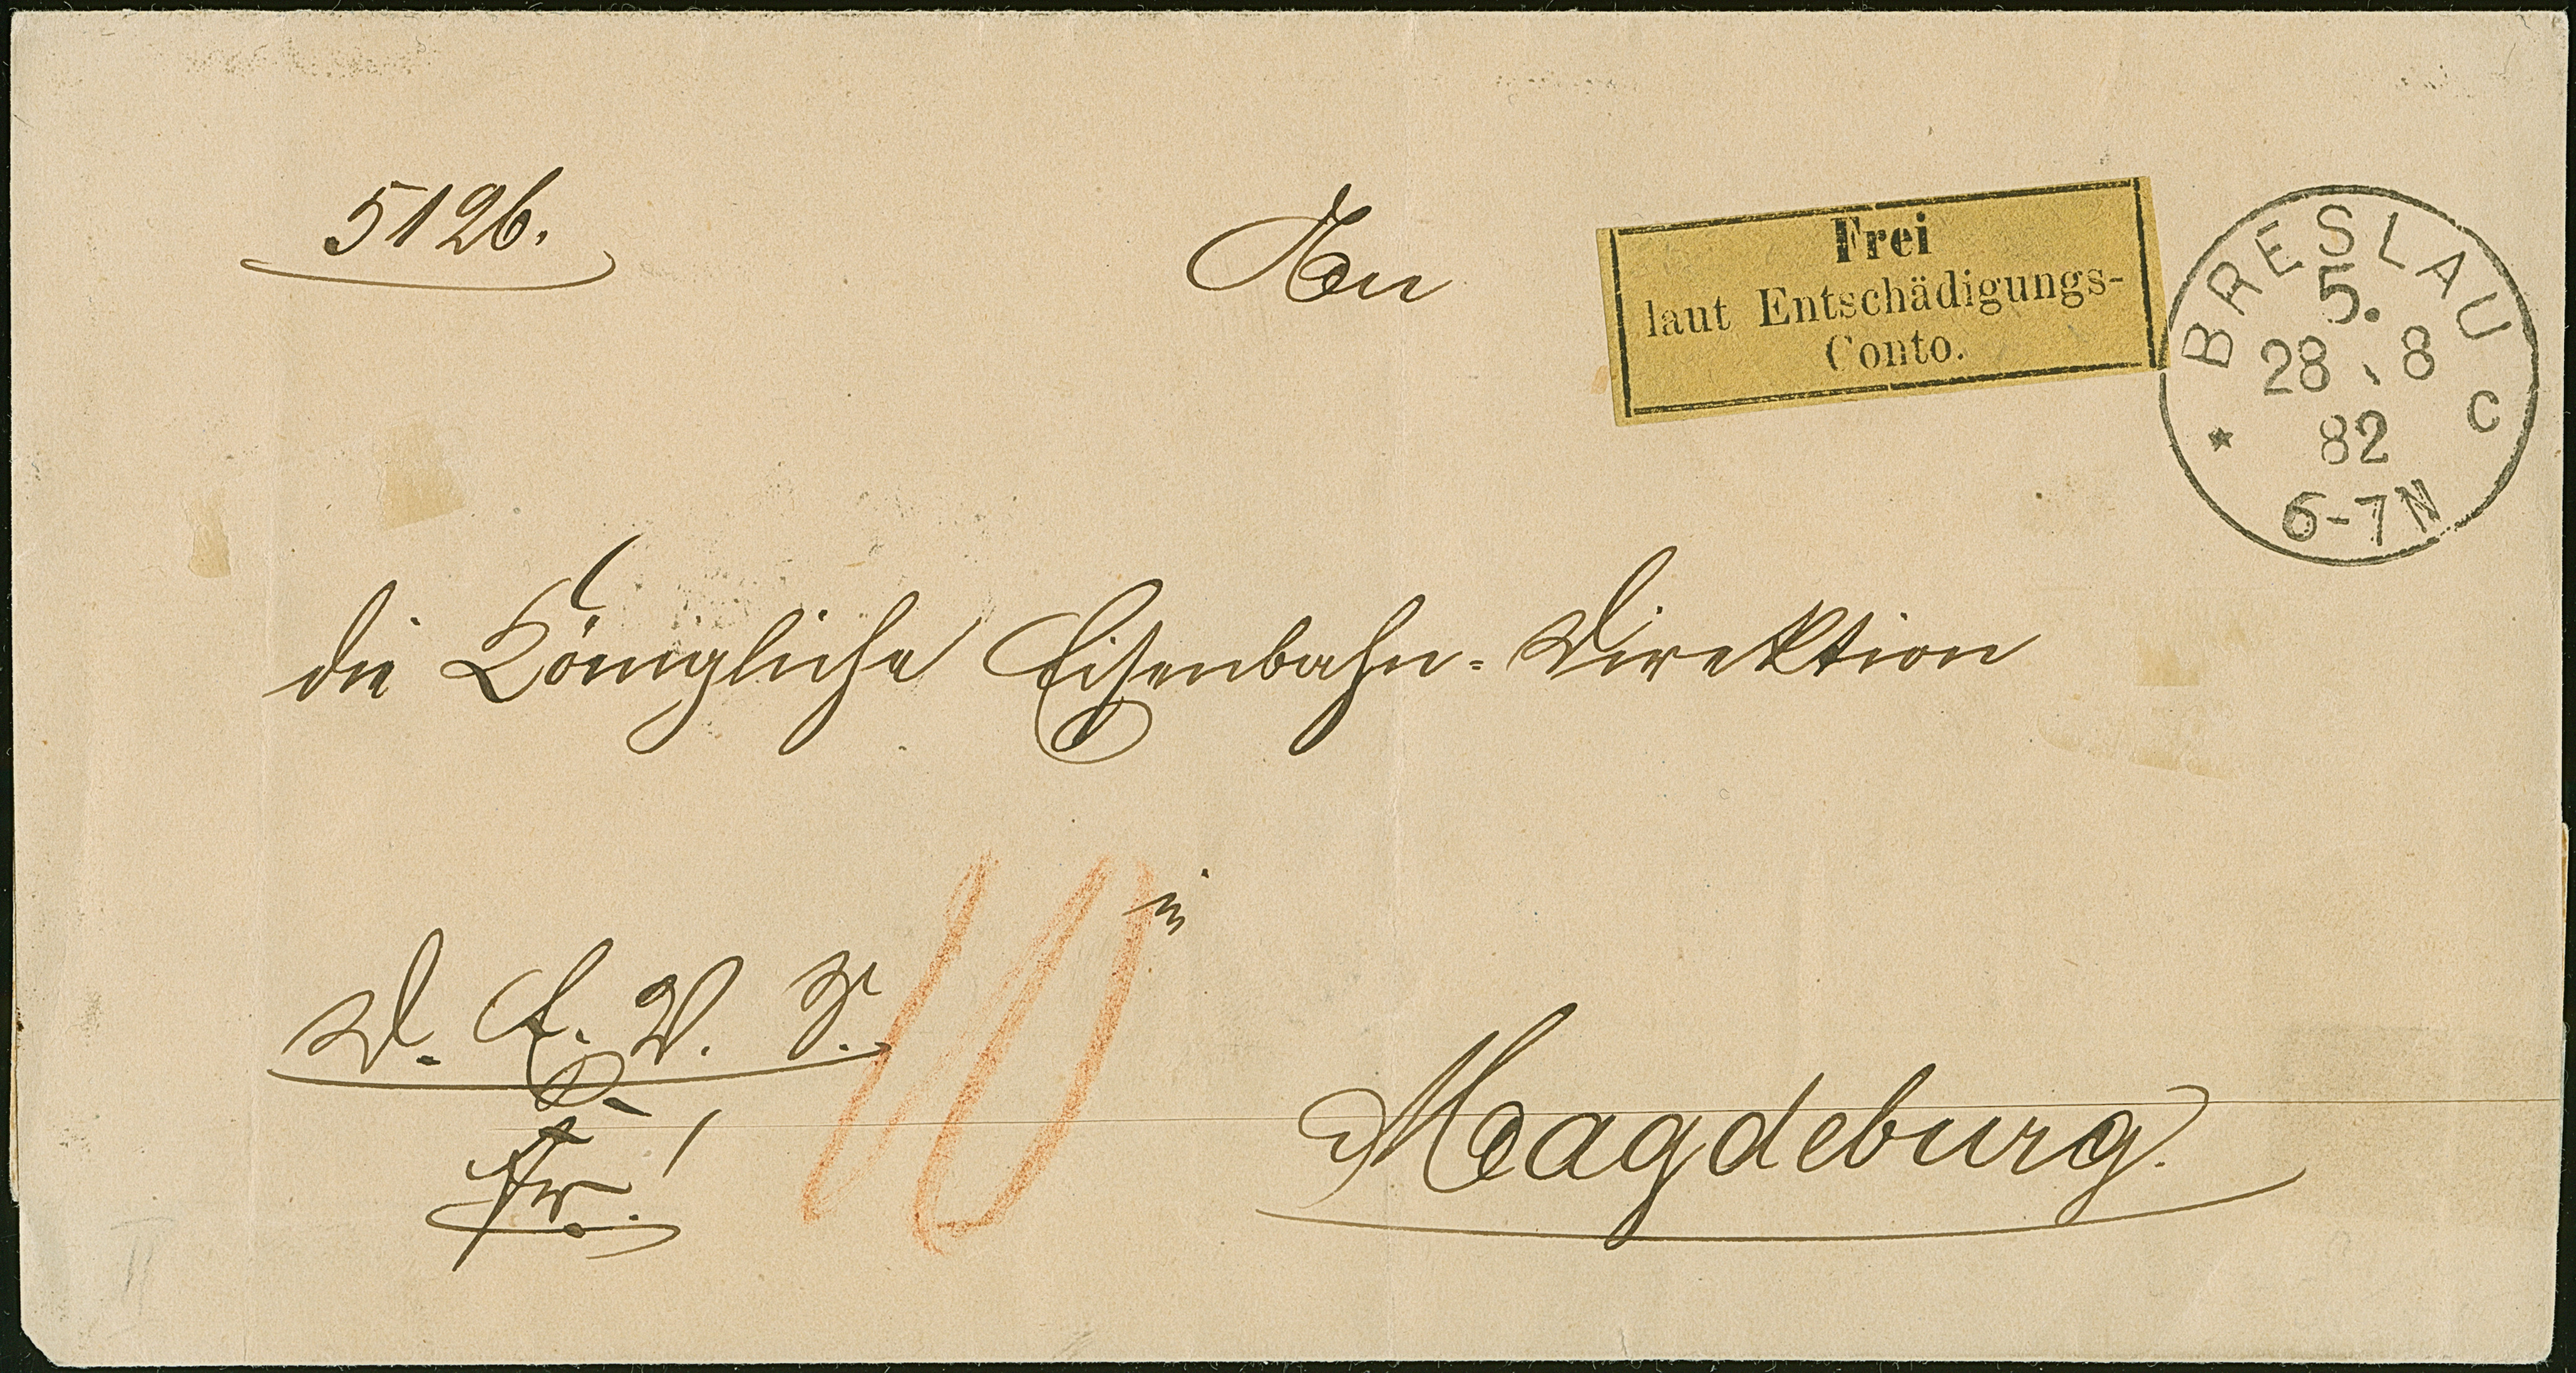 5126.
An
Frei
laut Entschädigungs-
Conto.
BRESLAU
5.
28 . 8
82
* C
6-7N
die Königliche Eisenbahn-Direktion
10
in
D. E. V. S.
Fr. !
Magdeburg.